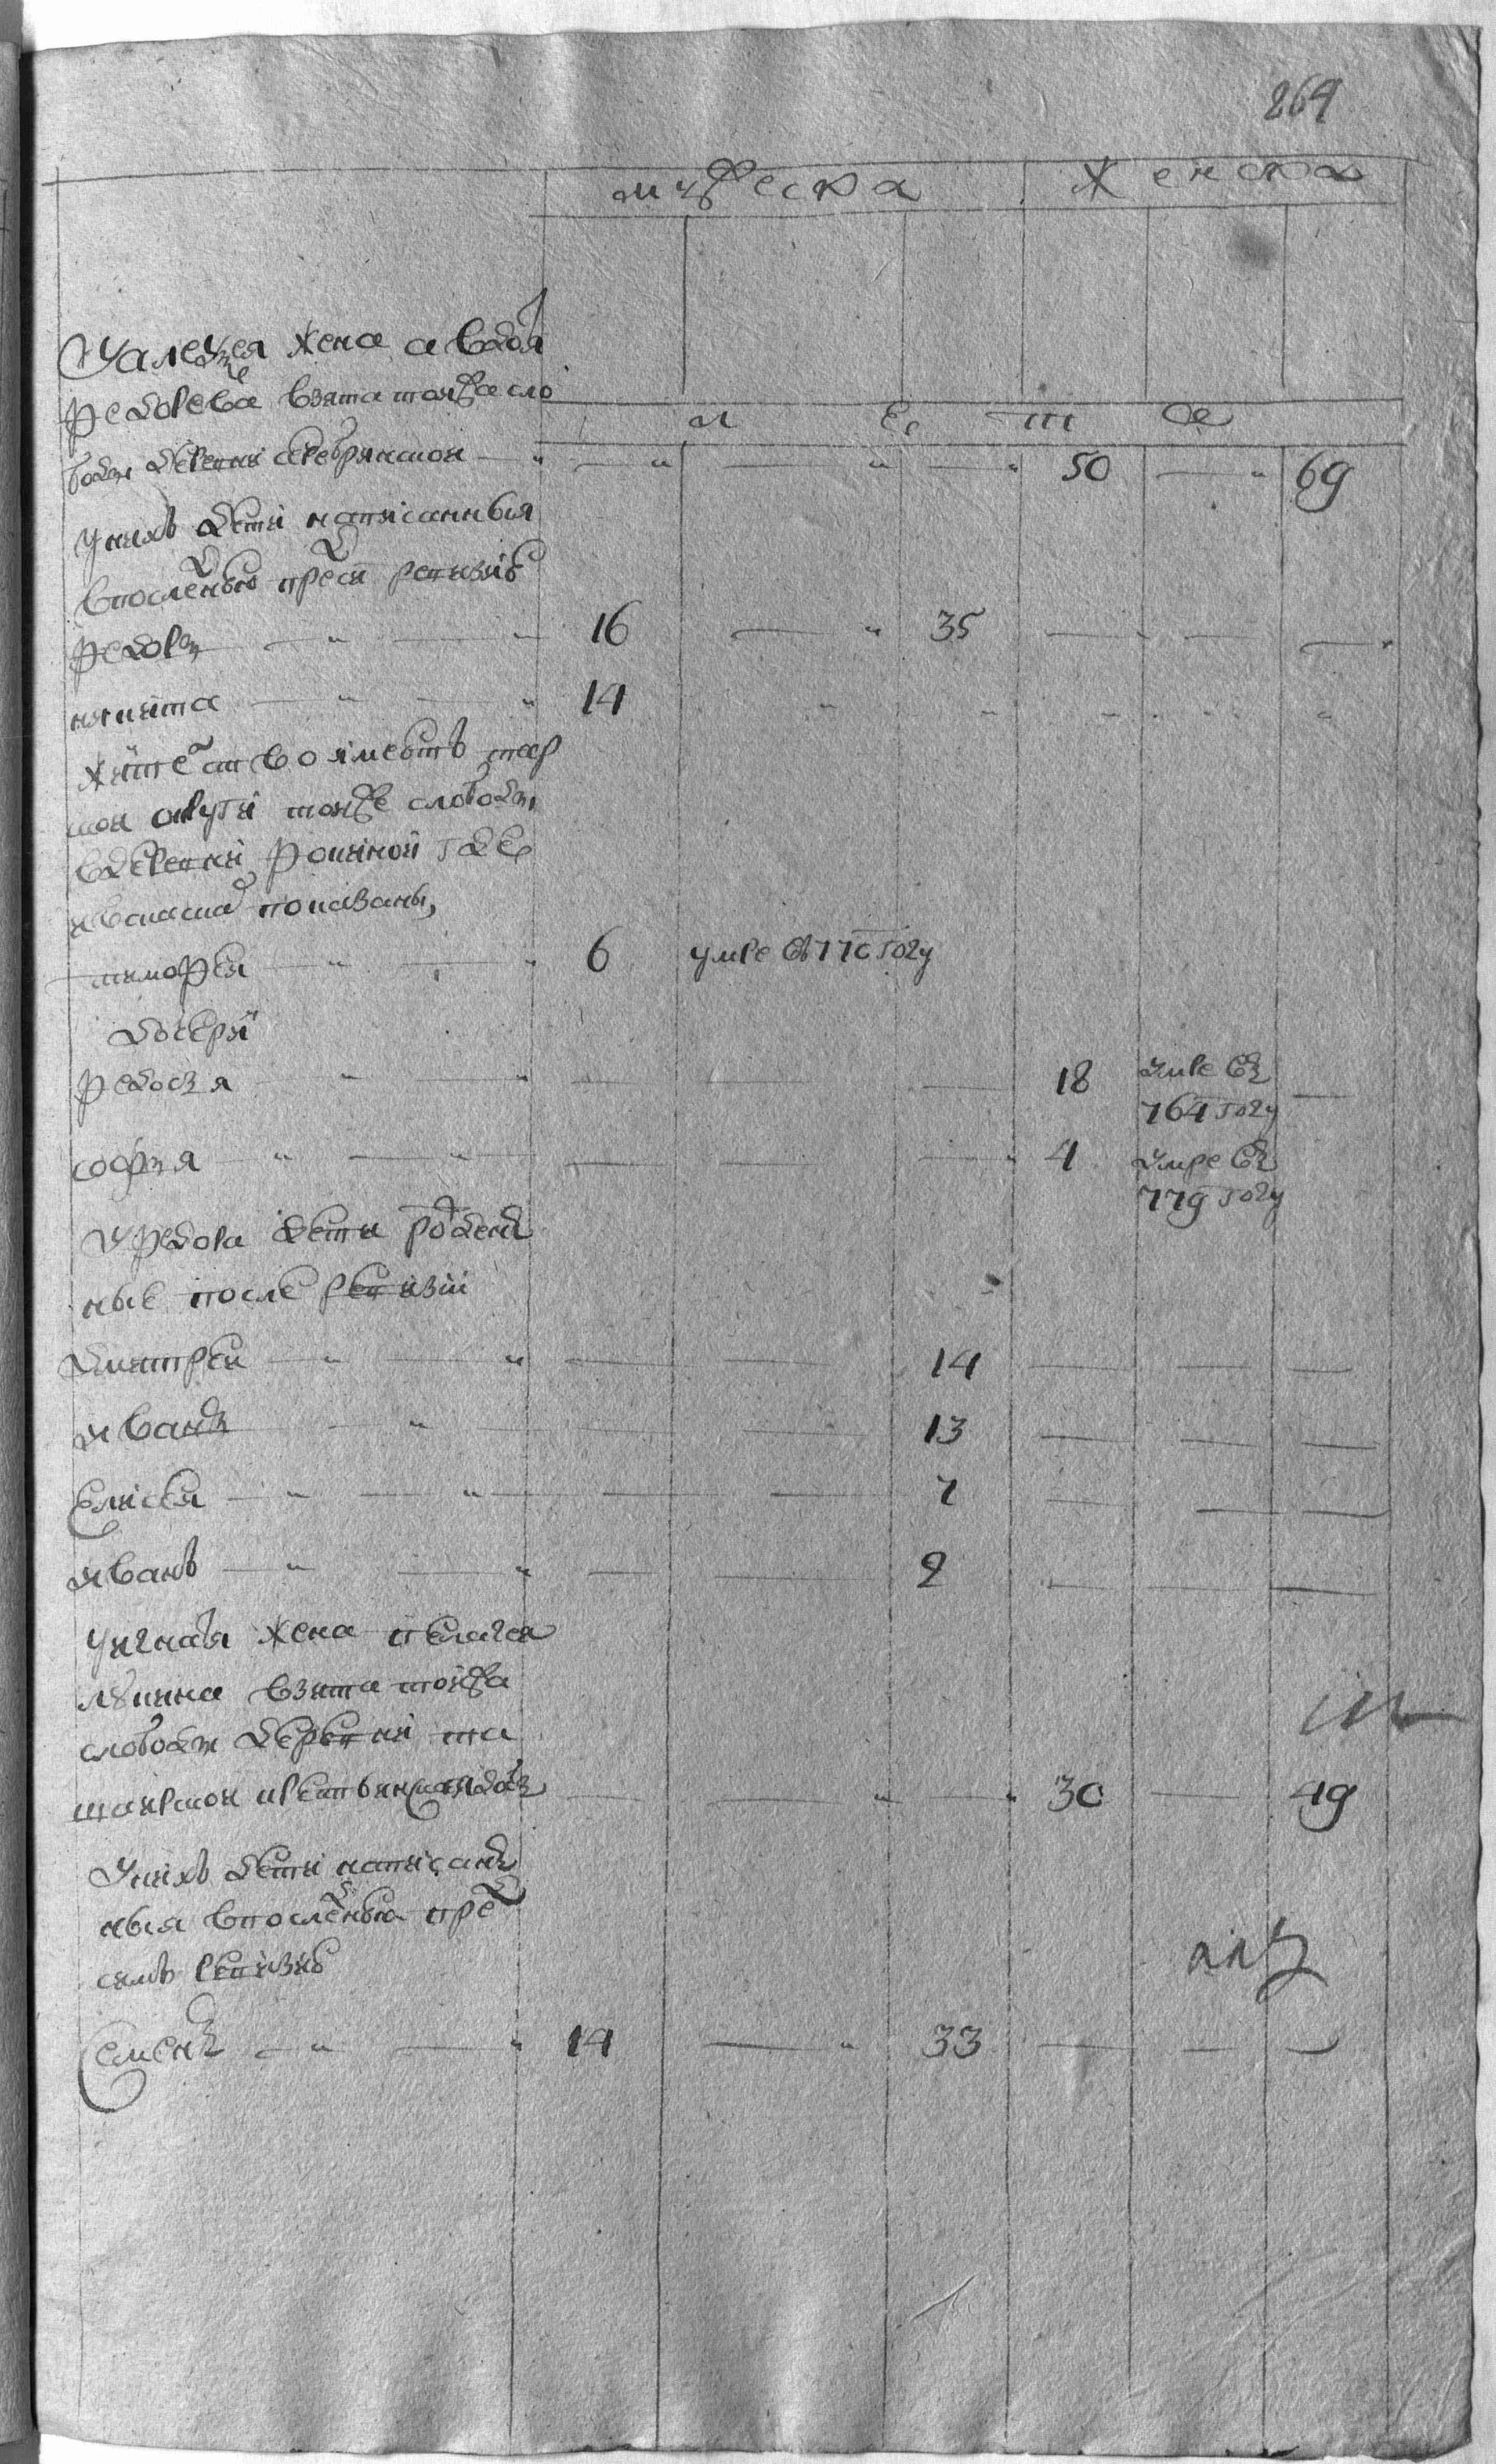 264
мужеска женска
У алеѯея жена авдотя
федорева взята тояжа сло
л е т а
боды деревни серебрянской 50 69
у них дети написанныя
в последнюю пред сим ревизию
Федор 16 35
никита 14
жителство имеет
той же слободы
в деревни фокиной где
и в сказке показаны,
тимофеи 6 умре в 770 году
дочери
федосья 18 умре в 764 году
софья 4 умре в 779 году
у федора дети рожден
ные после ревизии
дмитреи 14
иван 13
елисеи 7
иван 2
у игнатя жена пелагея
лукина взята тояжа
слободы деревни
крестьянская дочь 30 49
у них дети написан
ныя в последнюю пред
сим ревизию
Семен 14 33